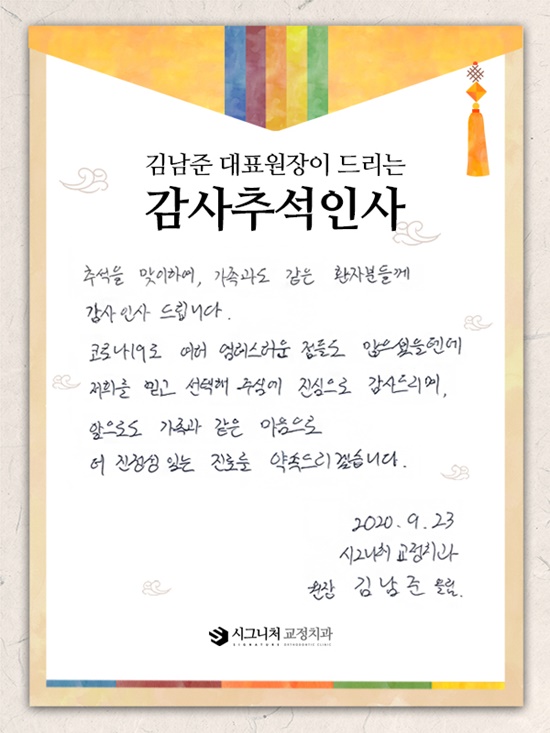 김남준 대표원장이 드리는
감사추석인사
추석을 맞이하여, 가족과도 같은 환자분들께
감사 인사 드립니다.
코로나19로 여러 염려스러운 점들도 많으셨을텐데
저희를 믿고 선택해 주심에 진심으로 감사드리며,
앞으로도 가족과 같은 마음으로
더 진정성 있는 진료를 약속드리겠습니다.
2020. 9. 23
시그니처 교정치과
원장 김남준 올림.
시그니처 교정치과
SIGNATURE ORTHODONTIC CLINIC